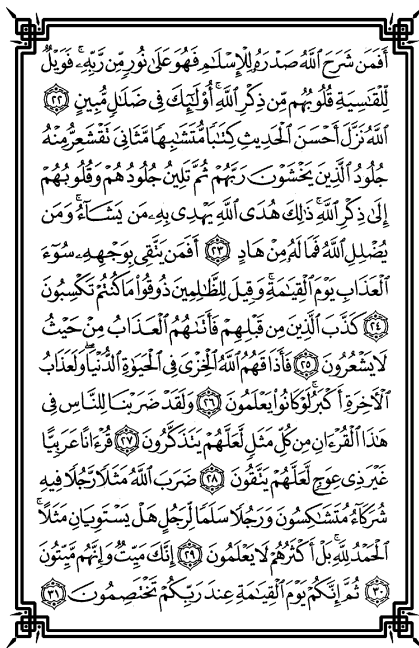 أَفَمَن شَرَحَ ٱللَّهُ صَدْرَهُۥ لِلْإِسْلَـٰمِ فَهُوَ عَلَىٰ نُورٍ مِّن رَّبِّهِۦ ۚ فَوَيْلٌ
لِّلْقَـٰسِيَةِ قُلُوبُهُم مِّن ذِكْرِ ٱللَّهِ ۚ أُو۟لَـٰٓئِكَ فِى ضَلَـٰلٍ مُّبِينٍ ٢٢
ٱللَّهُ نَزَّلَ أَحْسَنَ ٱلْحَدِيثِ كِتَـٰبًا مُّتَشَـٰبِهًا مَّثَانِىَ تَقْشَعِرُّ مِنْهُ
جُلُودُ ٱلَّذِينَ يَخْشَوْنَ رَبَّهُمْ ثُمَّ تَلِينُ جُلُودُهُمْ وَقُلُوبُهُمْ
إِلَىٰ ذِكْرِ ٱللَّهِ ۚ ذَٰلِكَ هُدَى ٱللَّهِ يَهْدِى بِهِۦ مَن يَشَآءُ ۚ وَمَن
يُضْلِلِ ٱللَّهُ فَمَا لَهُۥ مِنْ هَادٍ ٢٣ أَفَمَن يَتَّقِى بِوَجْهِهِۦ سُوٓءَ
ٱلْعَذَابِ يَوْمَ ٱلْقِيَـٰمَةِ ۚ وَقِيلَ لِلظَّـٰلِمِينَ ذُوقُوا۟ مَا كُنتُمْ تَكْسِبُونَ
٢٤ كَذَّبَ ٱلَّذِينَ مِن قَبْلِهِمْ فَأَتَىٰهُمُ ٱلْعَذَابُ مِنْ حَيْثُ
لَا يَشْعُرُونَ ٢٥ فَأَذَاقَهُمُ ٱللَّهُ ٱلْخِزْىَ فِى ٱلْحَيَوٰةِ ٱلدُّنْيَا ۖ وَلَعَذَابُ
ٱلْـَٔاخِرَةِ أَكْبَرُ ۚ لَوْ كَانُوا۟ يَعْلَمُونَ ٢٦ وَلَقَدْ ضَرَبْنَا لِلنَّاسِ فِى
هَـٰذَا ٱلْقُرْءَانِ مِن كُلِّ مَثَلٍ لَّعَلَّهُمْ يَتَذَكَّرُونَ ٢٧ قُرْءَانًا عَرَبِيًّا
غَيْرَ ذِى عِوَجٍ لَّعَلَّهُمْ يَتَّقُونَ ٢٨ ضَرَبَ ٱللَّهُ مَثَلًا رَّجُلًا فِيهِ
شُرَكَآءُ مُتَشَـٰكِسُونَ وَرَجُلًا سَلَمًا لِّرَجُلٍ هَلْ يَسْتَوِيَانِ مَثَلًا ۚ
ٱلْحَمْدُ لِلَّهِ ۚ بَلْ أَكْثَرُهُمْ لَا يَعْلَمُونَ ٢٩ إِنَّكَ مَيِّتٌ وَإِنَّهُم مَّيِّتُونَ
٣٠ ثُمَّ إِنَّكُمْ يَوْمَ ٱلْقِيَـٰمَةِ عِندَ رَبِّكُمْ تَخْتَصِمُونَ ٣١